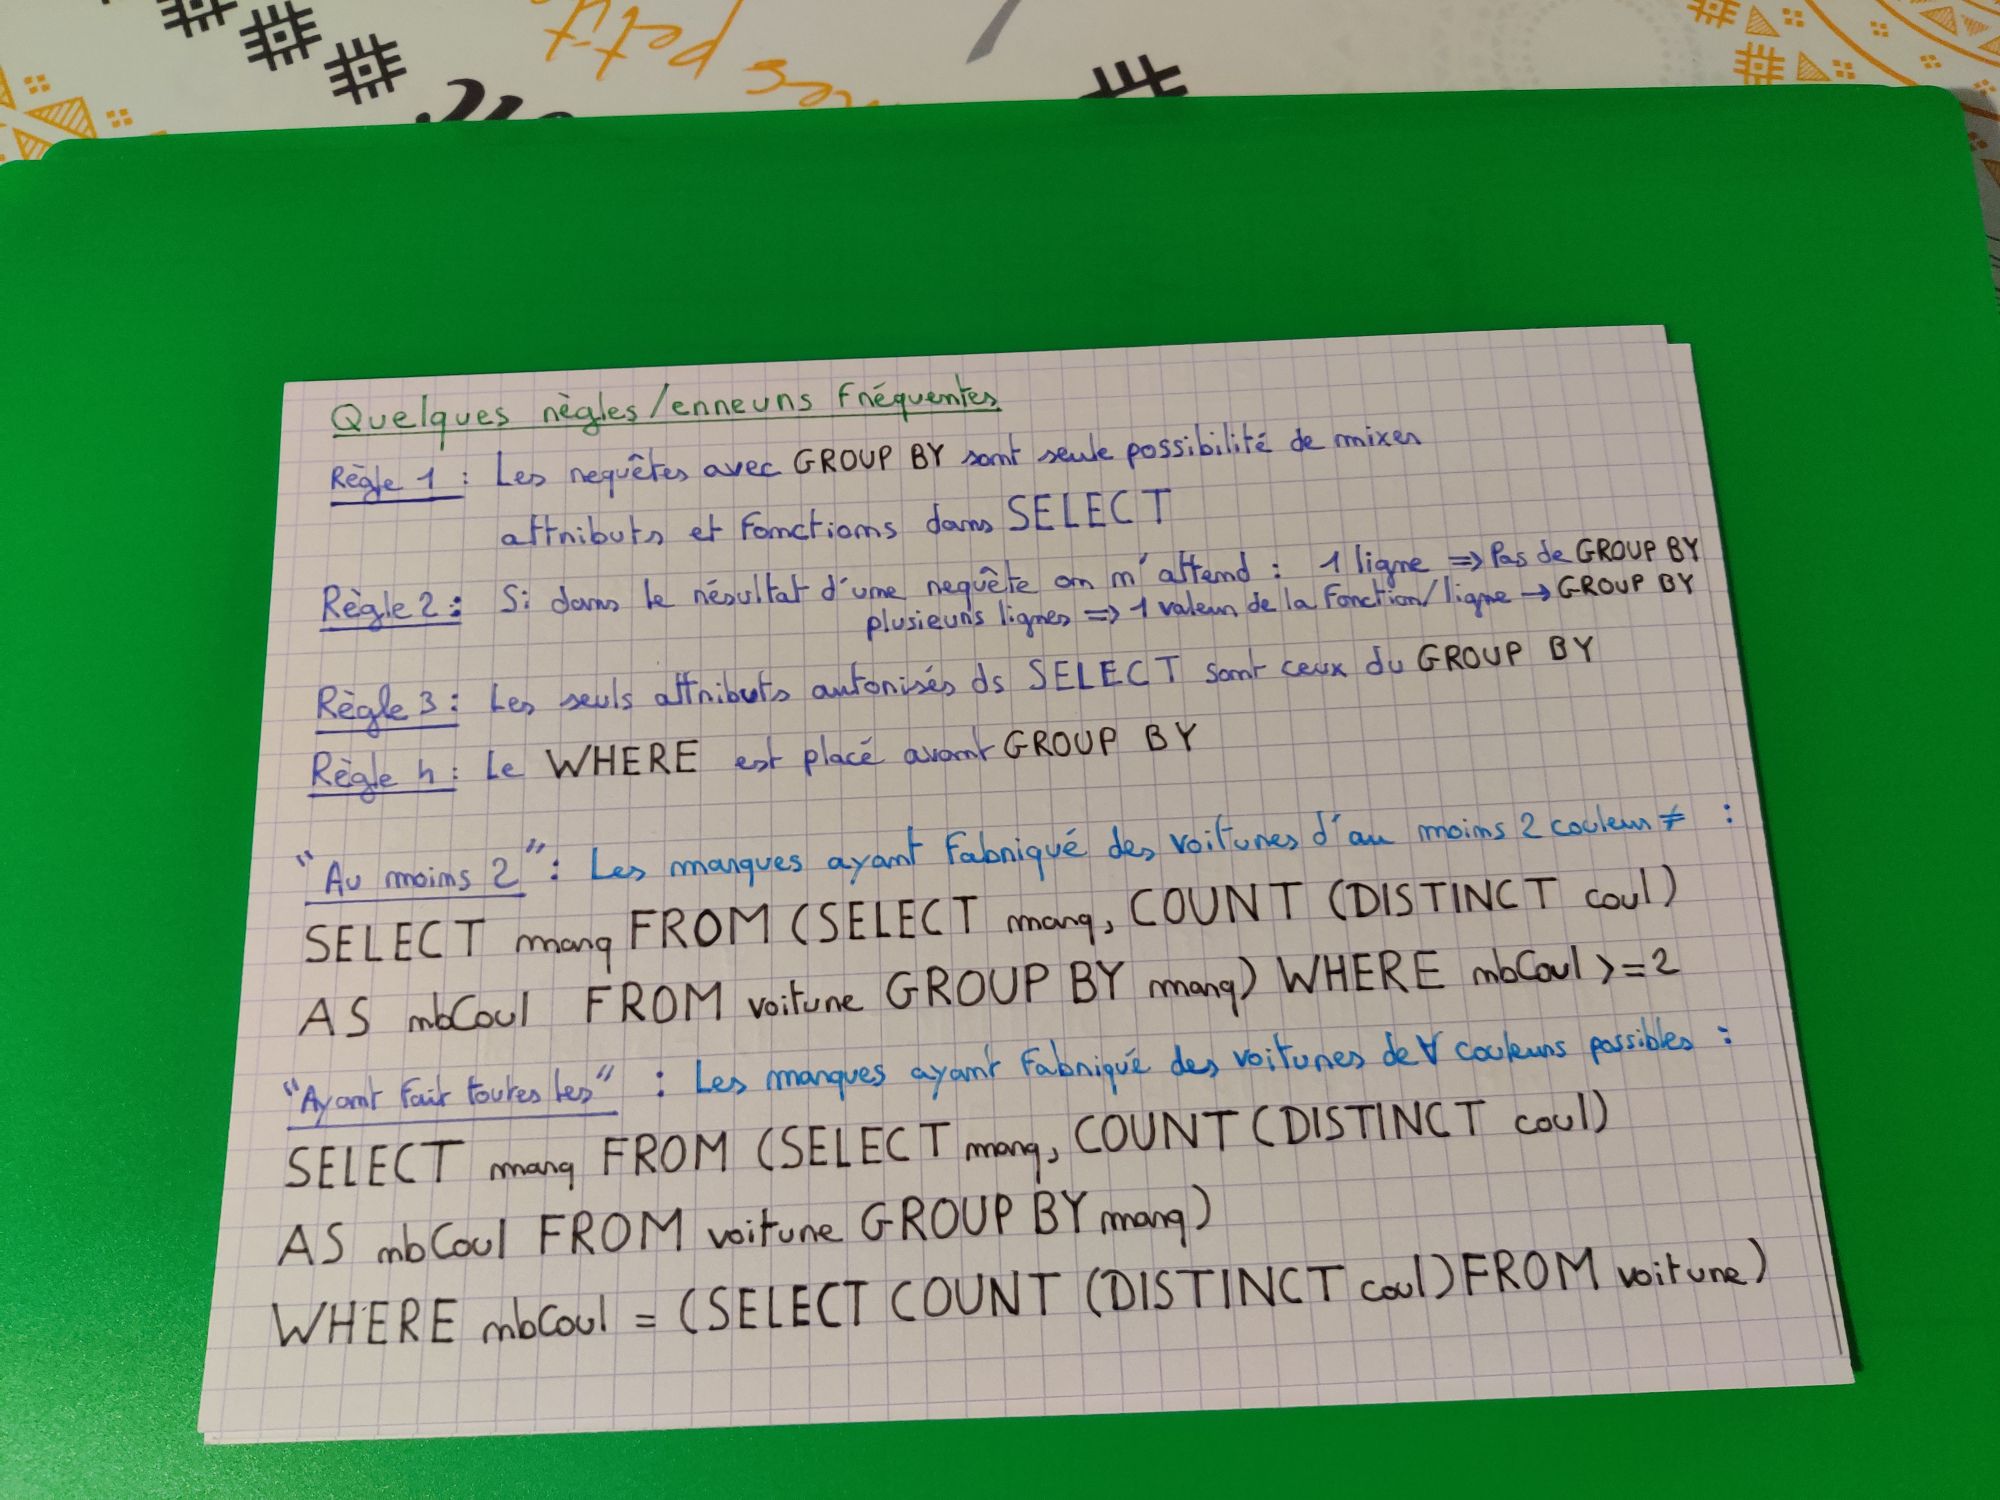 es petit
Quelques règles/erreurs fréquentes
Règle 1 : Les requêtes avec GROUP BY sont seule possibilité de mixer
attributs et fonctions dans SELECT
Règle 2 : Si dans le résultat d'une requête on m'attend : 1 ligne => Pas de GROUP BY
plusieurs lignes => 1 valeur de la fonction/ligne → GROUP BY
Règle 3 : Les seuls attributs autorisés ds SELECT sont ceux du GROUP BY
Règle 4 : Le WHERE est placé avant GROUP BY
"Au moins 2" : Les marques ayant fabriqué des voitures d'au moins 2 couleur ≠ :
SELECT marq FROM (SELECT marq, COUNT (DISTINCT coul)
AS nbCoul FROM voiture GROUP BY marq) WHERE nbCoul >=2
"Ayant fait toutes les" : Les marques ayant fabriqué des voitures de ∀ couleurs possibles :
SELECT marq FROM (SELECT marq, COUNT (DISTINCT coul)
AS nbCoul FROM voiture GROUP BY marq)
WHERE nbCoul = (SELECT COUNT (DISTINCT coul) FROM voiture)